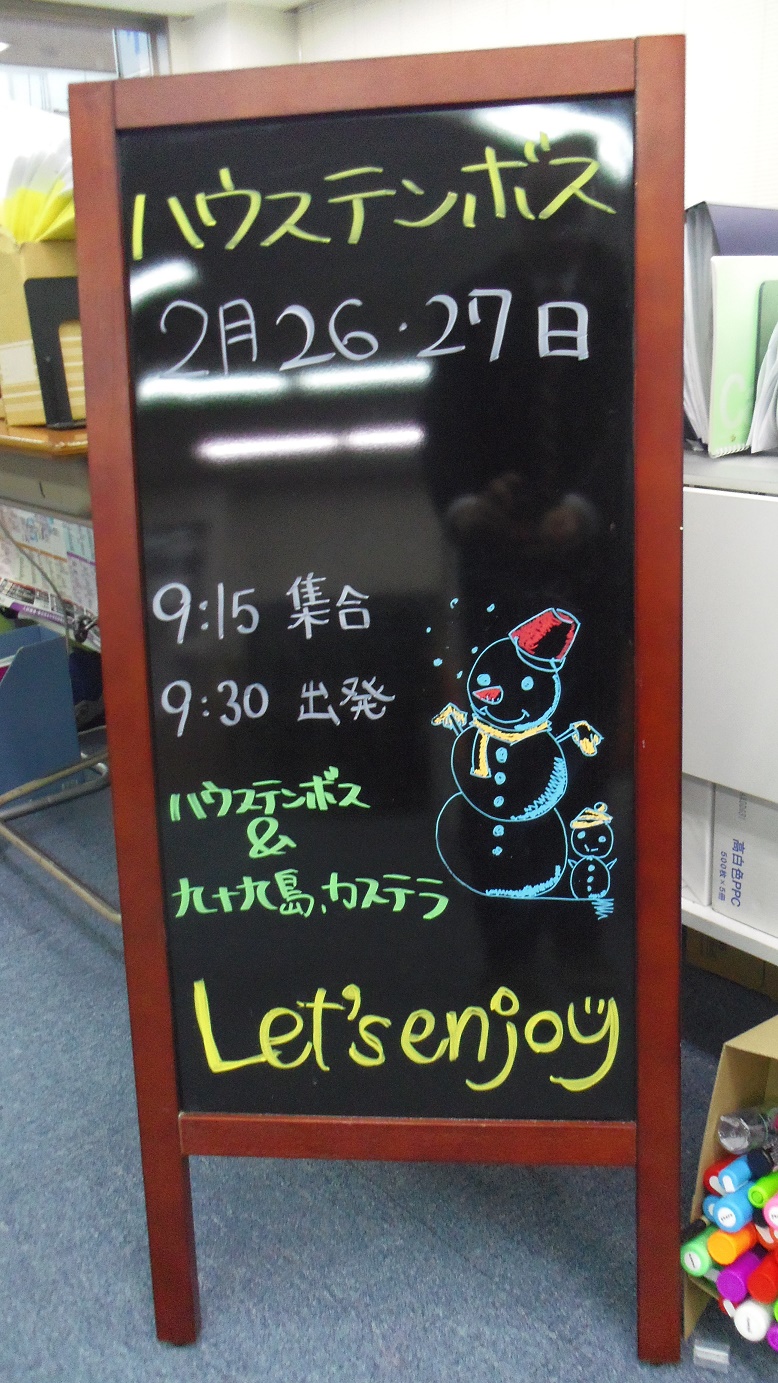 ハウステンボス
2月26・27日
9:15 集合
9:30 出発
ハウステンボス
&
九十九島、カステラ
Let's enjoy
C
高白色PPC
500枚×5冊